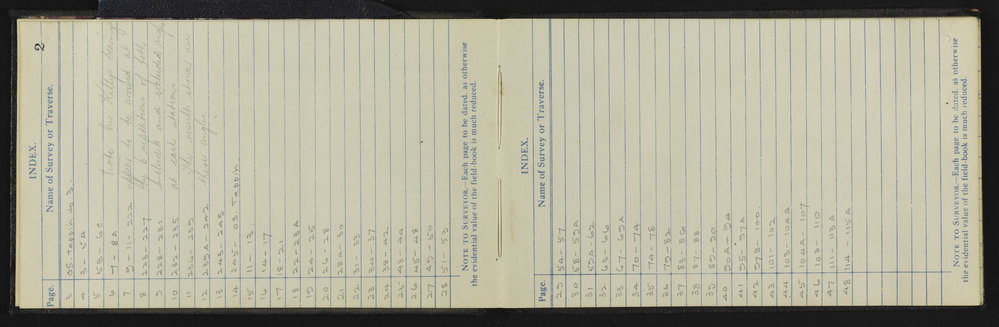 2
INDEX.
Page. Name of Survey or Traverse.
3 OS. Tappin to 3.
4 3 - 5A
5 5B - 6C
6 7 - 8A
7 9 - 11 - 222
8 223 - 227
9 228 - 231
10 232 - 235
11 236 - 239
12 239A - 242
13 243 - 245
14 245 - OS. Tappin
15 11 - 13
16 14 - 17
17 18 - 21
18 22 - 23A
19 24 - 25
20 26 - 28
21 28A - 30
22 31 - 33
23 34 - 37
24 38 - 42
25 43 - 44
26 45 - 48
27 49 - 50
28 51 - 53
Note
appear to be
by comparison of both
included and
at each station
the results
NOTE TO SURVEYOR.—Each page to be dated, as otherwise
the evidential value of the field-book is much reduced.
INDEX.
Page. Name of Survey or Traverse.
29 54 - 57
30 58 - 59A
31 59A - 62
32 63 - 66
33 67 - 69A
34 70 - 74
35 74 - 78
36 79 - 82
37 83 - 86
38 87 - 88
39 89 - 90
40 90A - 94
41 95 - 97A
42 97B - 100
43 101 - 102
44 103 - 104A
45 104A - 107
46 108 - 110
47 111 - 113A
48 114 - 115A
NOTE TO SURVEYOR.—Each page to be dated, as otherwise
the evidential value of the field-book is much reduced.